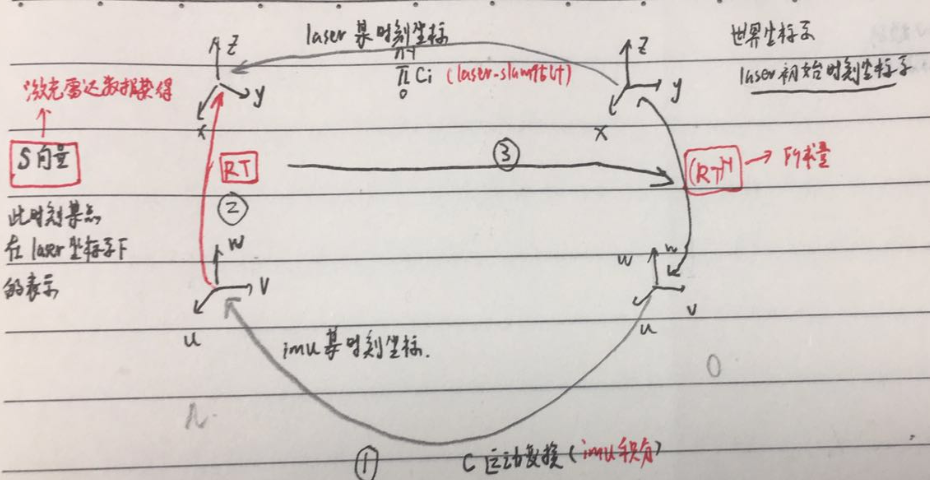 laser 某时刻坐标
n-1
π Ci (laser-slam估计)
0
世界坐标系
laser初始时刻坐标系
激光雷达数据获得
S向量
此时刻某点
在laser坐标系下
的表示
z
y
x
RT
②
③
z
y
x
(RT)⁻¹
所求量
w
v
u
w
v
u
imu某时刻坐标.
n
0
①
C 运动变换(imu积分)